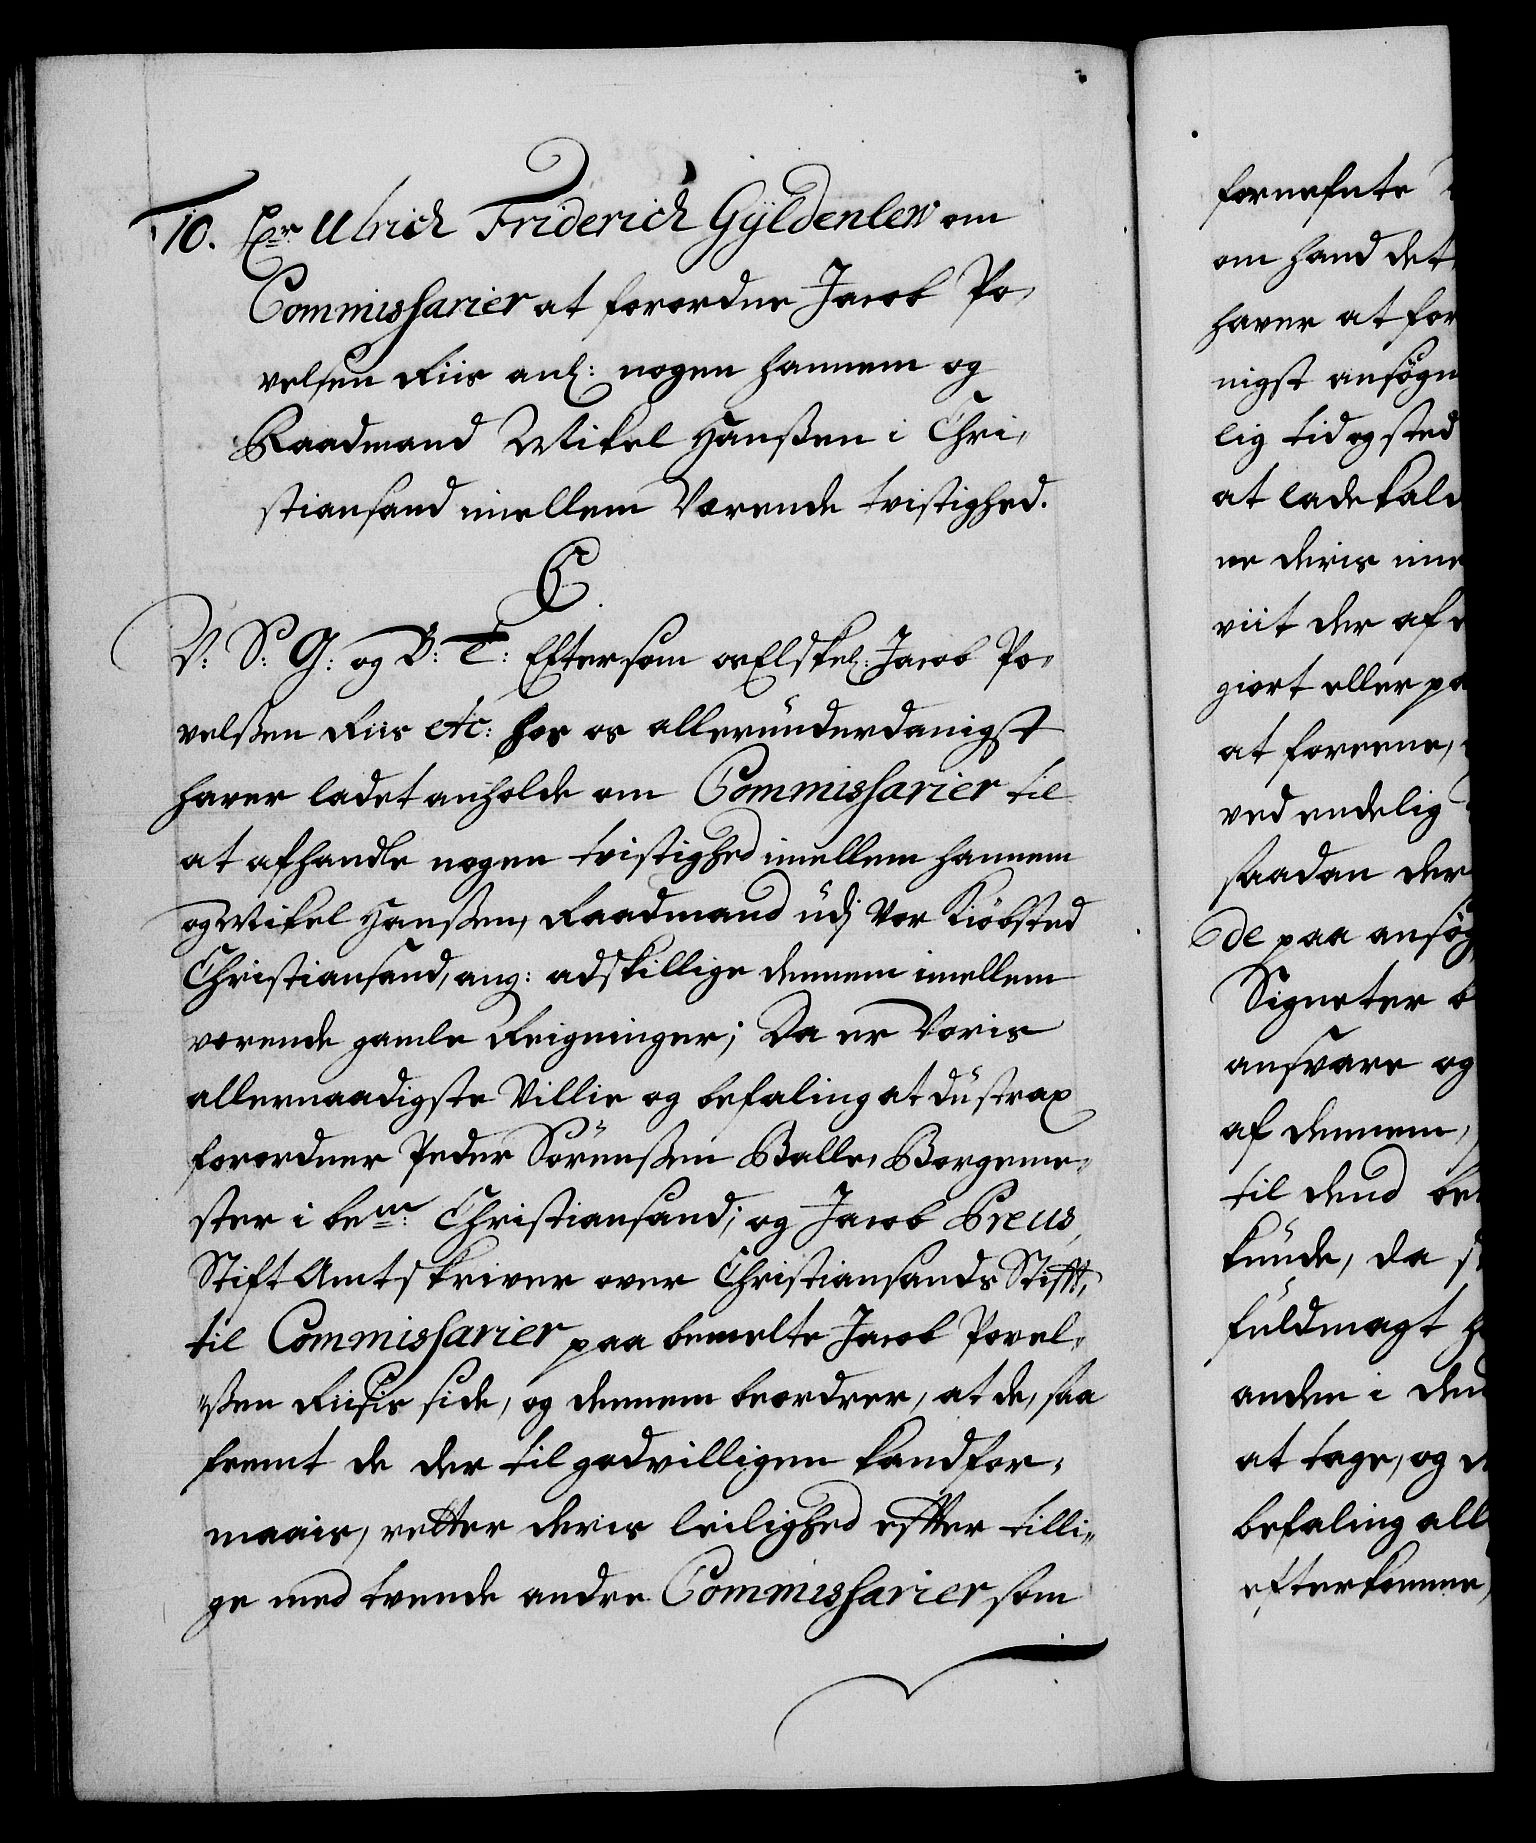 10. Hr. Ulrich Friderich Gyldenlew om
Commissarier at forordne Jacob Po-
velsen Riis anl: nogen hannem og
Raadmand Mikel Hanssen i Chri-
stiansand imellem Værende tvistighed.
C.
V: S: G: og B: T: Eftersom os Elskel: Jacob Po-
velssen Riis etc: hos os allerunderdanigst
haver ladet anholde om Commissarier til
at afhandle nogen tvistighed imellem hannem
og Mikel Hanssen, Raadmand udj Vor Kiöbsted
Christiansand, ang: adskillige dennem imellem
værende gamle Reigninger; Da er Voris
allernaadigste Villie og befaling at du strax
forordner Peder Sörenssen Balle, Borgeme-
ster i bem: Christiansand; og Jacob Preus,
Stift Amtskriver over Christiansands Stift,
til Commissarier paa bemelte Jacob Povel-
ssen Riises side, og dennem beordrer, at de, saa
fremt de der til godvilligen kand for-
maais, retter deris leilighed effter tilli-
ge med tvende andre Commissarier som
fornefnte
om hand det
haver at for
nigst ansögn
lig tid og sted
at lade kald
ne deris ime
viit der af
giort eller pa
at foreene,
ved endelig
saadan der
de paa ansög
Signeter b
ansvare og
af dennem,
til dend be
kunde, da
fuldmagt h
anden i den
at tage, og
befaling all
efterkomme,